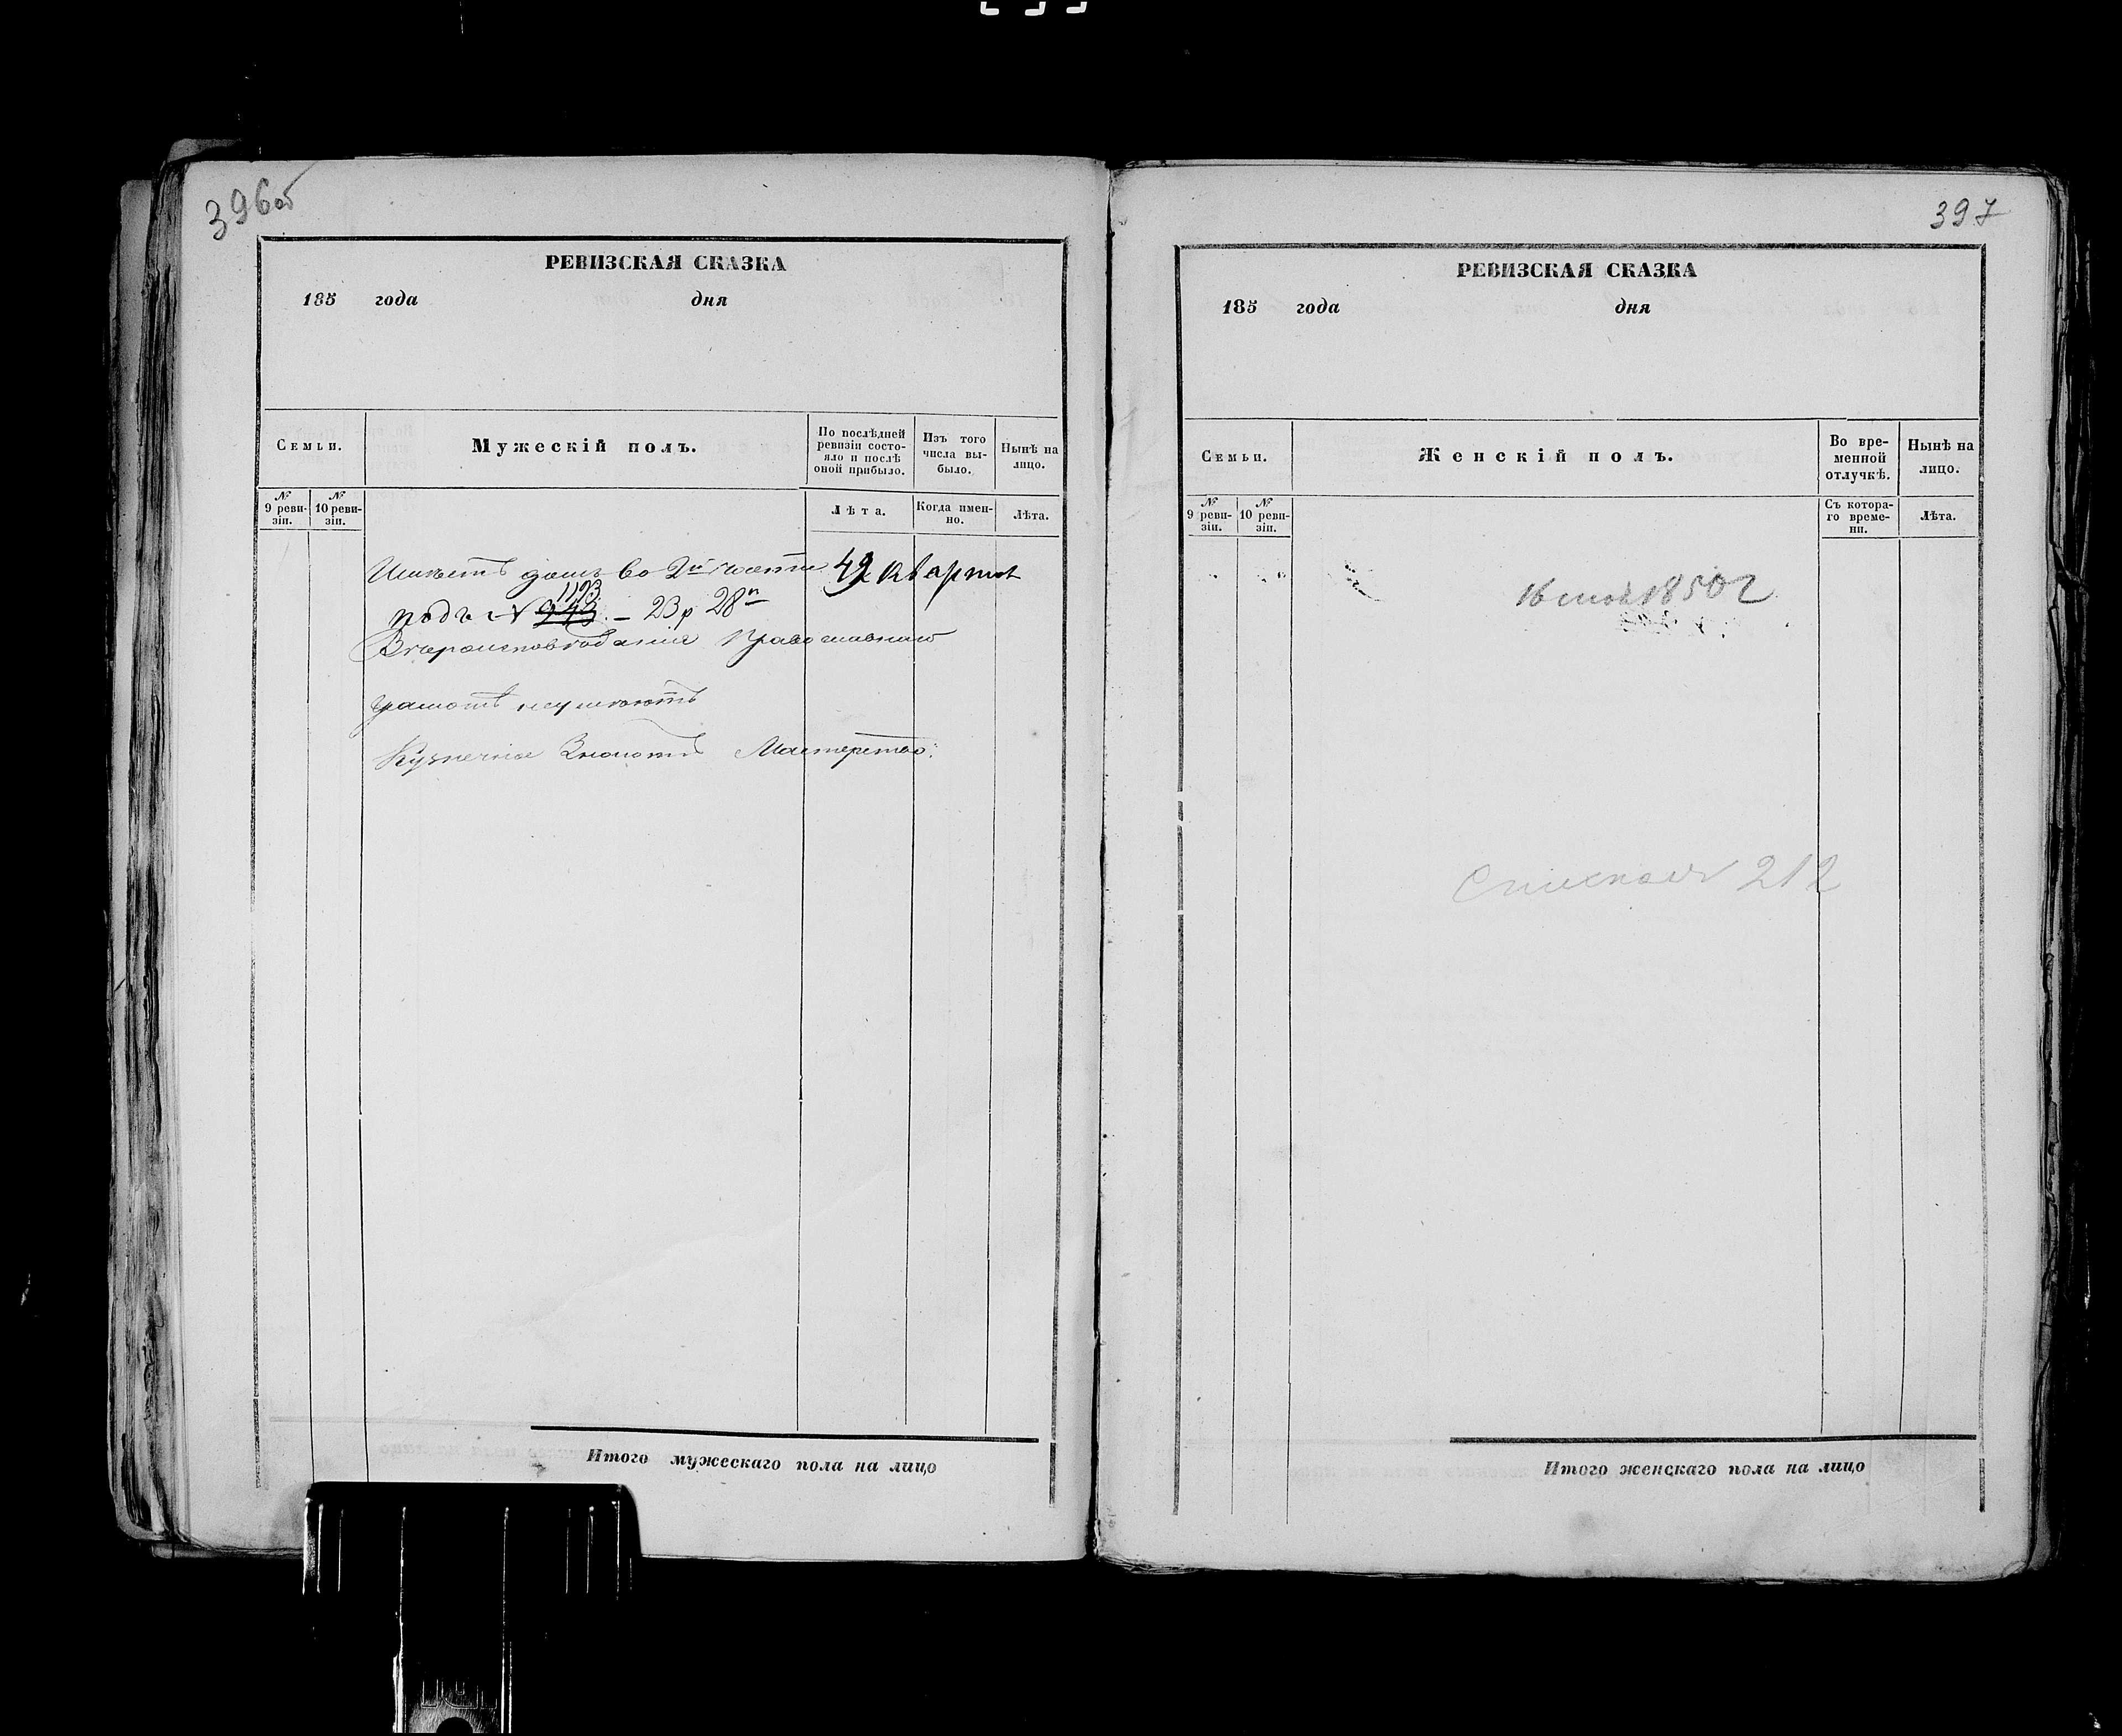 396об
РЕВИЗСКАЯ СКАЗКА
185 года дня
Семьи.
Мужескій полъ.
По послѣдней ревизіи состояло и послѣ оной прибыло.
Изъ того числа выбыло.
Нынѣ на лицо.
№ 9 ревизіи.
№ 10 ревизіи.
Лѣта.
Когда именно.
Лѣта.
Имѣетъ домъ во 2й части 42 квартал
1123
подъ № 943. – 23 р 28 к
Вѣроисповѣданія Православнаго
грамотѣ неумѣютъ
Кузнечное Знаютъ Мастерство.
Итого мужескаго пола на лицо
397
РЕВИЗСКАЯ СКАЗКА
185 года дня
Семьи.
Женскій полъ.
Во временной отлучкѣ.
Нынѣ на лицо.
№ 9 ревизіи.
№ 10 ревизіи.
Съ котораго времени.
Лѣта.
16 1850 г
212
Итого женскаго пола на лицо